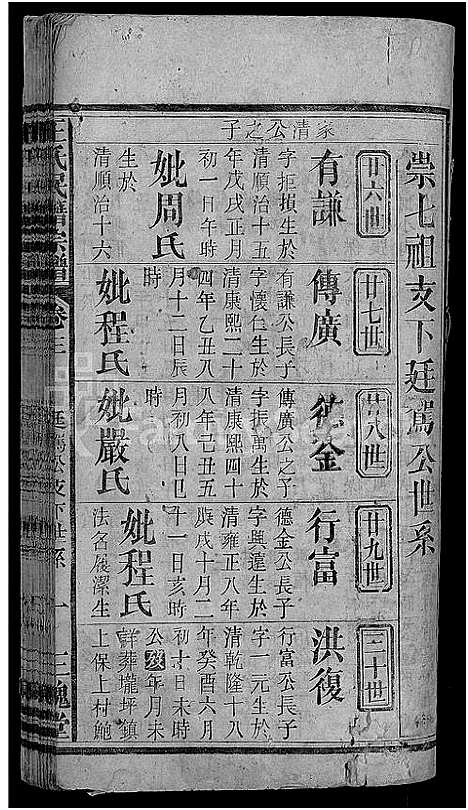 崇七祖支下廷鴌公世系
廿六世
家清公之子
有謙
字拒損生於
清順治十五
年戊戌正月
初一日午時
妣周氏
生於
清順治十六
廿七世
傳廣
有謙公長子
字懷仁生於
清康熙二十
四年乙丑八
月十二日辰
時
妣程氏
廿八世
德金
傳廣公之子
字振萬生於
清康熙四十
八年己丑五
月初八日巳
時
妣嚴氏
廿九世
行富
德金公長子
字興遑生於
清雍正八年
庚戌十月二
十一日亥時
妣程氏
法名履潔生
三十世
洪復
行富公長子
字一元生於
清乾隆十八
年癸酉六月
初十日未時
公發年月未
詳葬壠坪鎮
上保上村鮑
王氏民譜宗譜
卷三
廷鴌公支下世系
一
三槐堂